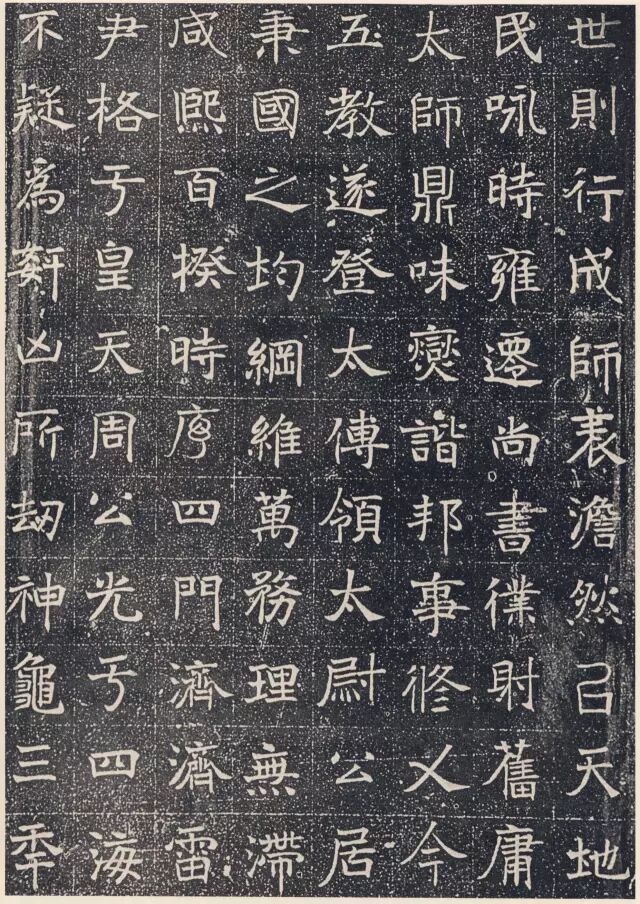 世則行成師表澹然㠯天地
民咏時雍遷尚書僕射舊庸
太師鼎味燮諧邦事脩乂今
五教遂登太傅領太尉公居
秉國之均綱維萬務理無滯
咸熙百揆時序四門濟濟雷
尹格于皇天周公光于四海
不疑為姧凶所劫神龜三年